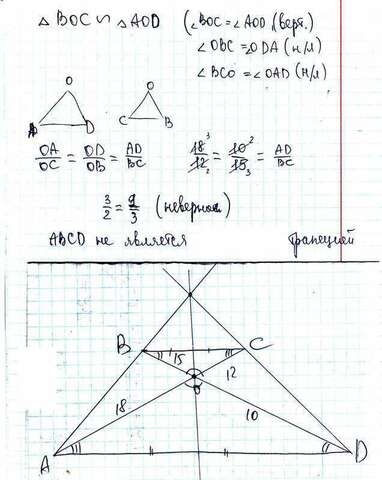 △ BOC ∽ △ AOD (∠BOC = ∠AOD (верт.)
∠OBC = ∠ODA (н/л)
∠BCO = ∠OAD (н/л)
O O
A D C B
OA/OC = OD/OB = AD/BC 18³/12₂ = 10²/15₃ = AD/BC
3/2 = 2/3 (неверно)
ABCD не является трапецией
B C
15 12
O
18 10
A D